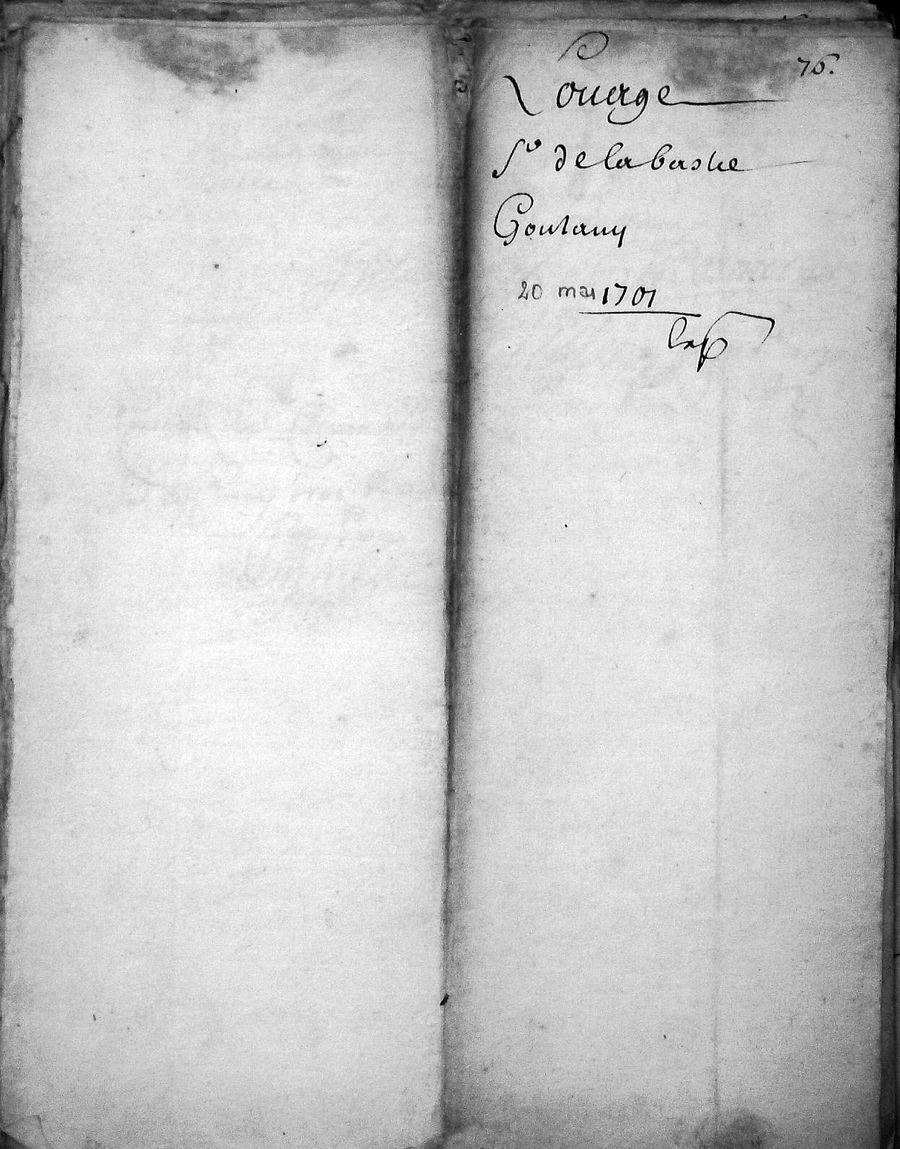 75.
Louage
Sr de la basue
Goutany
20 mai 1701